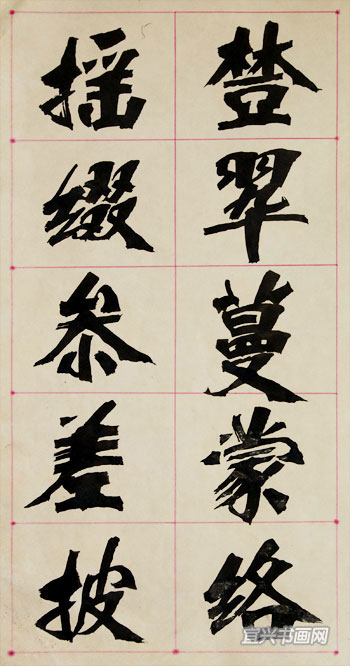 树翠蔓蒙络
摇缀参差披
宜兴书画网